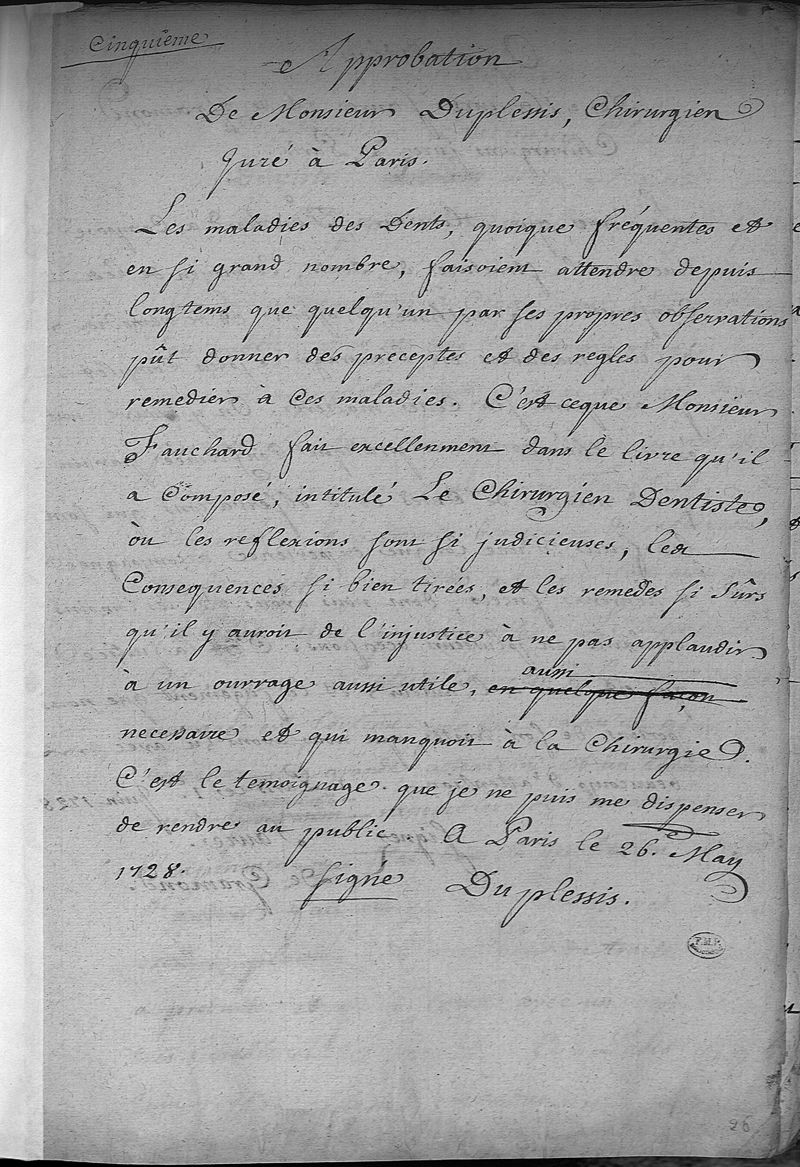 Cinquiême
Approbation
De Monsieur Duplessis, Chirurgien
Juré à Paris.
Les maladies des Dents, quoique fréquentes et
en si grand nombre, faisoient attendre depuis
longtems que quelqu'un par ses propres observations
pût donner des preceptes et des regles pour
remedier à ces maladies. C'est ceque Monsieur
Fauchard fait excellenment dans le livre qu'il
a composé, intitulé Le Chirurgien Dentiste,
òu les reflexions sont si judicieuses, les
Consequences si bien tirées, et les remedes si sûrs
qu'il y auroit de l'injustice à ne pas applaudir
aussi
à un ouvrage aussi utile, en quelque façon
necessaire et qui manquoit à la Chirurgie.
C'est le temoignage que je ne puis me dispenser
de rendre au public A Paris le 26.e May
1728. signé Duplessis.
F.M.P.
26